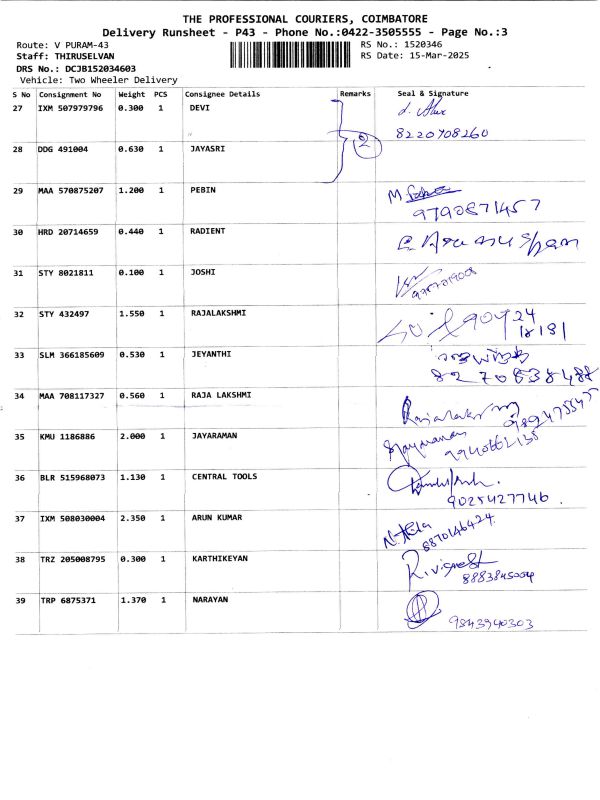 THE PROFESSIONAL COURIERS, COIMBATORE
Delivery Runsheet - P43 - Phone No.:0422-3505555 - Page No.:3
Route: V PURAM-43 RS No.: 1520346
Staff: THIRUSELVAN RS Date: 15-Mar-2025
DRS No.: DCJB152034603
Vehicle: Two Wheeler Delivery
S No Consignment No Weight PCS Consignee Details Remarks Seal & Signature
27 IXM 507979796 0.300 1 DEVI
8220708260
28 DDG 491004 0.630 1 JAYASRI 2
29 MAA 570875207 1.200 1 PEBIN
9790871457
30 HRD 20714659 0.440 1 RADIENT
31 STY 8021811 0.100 1 JOSHI
32 STY 432497 1.550 1 RAJALAKSHMI
33 SLM 366185609 0.530 1 JEYANTHI
82 70838488
34 MAA 708117327 0.560 1 RAJA LAKSHMI
35 KMU 1186886 2.000 1 JAYARAMAN Jayaraman
36 BLR 515968073 1.130 1 CENTRAL TOOLS
9025427746.
37 IXM 508030004 2.350 1 ARUN KUMAR
6870146424
38 TRZ 205008795 0.300 1 KARTHIKEYAN
8883845004
39 TRP 6875371 1.370 1 NARAYAN
9843940303